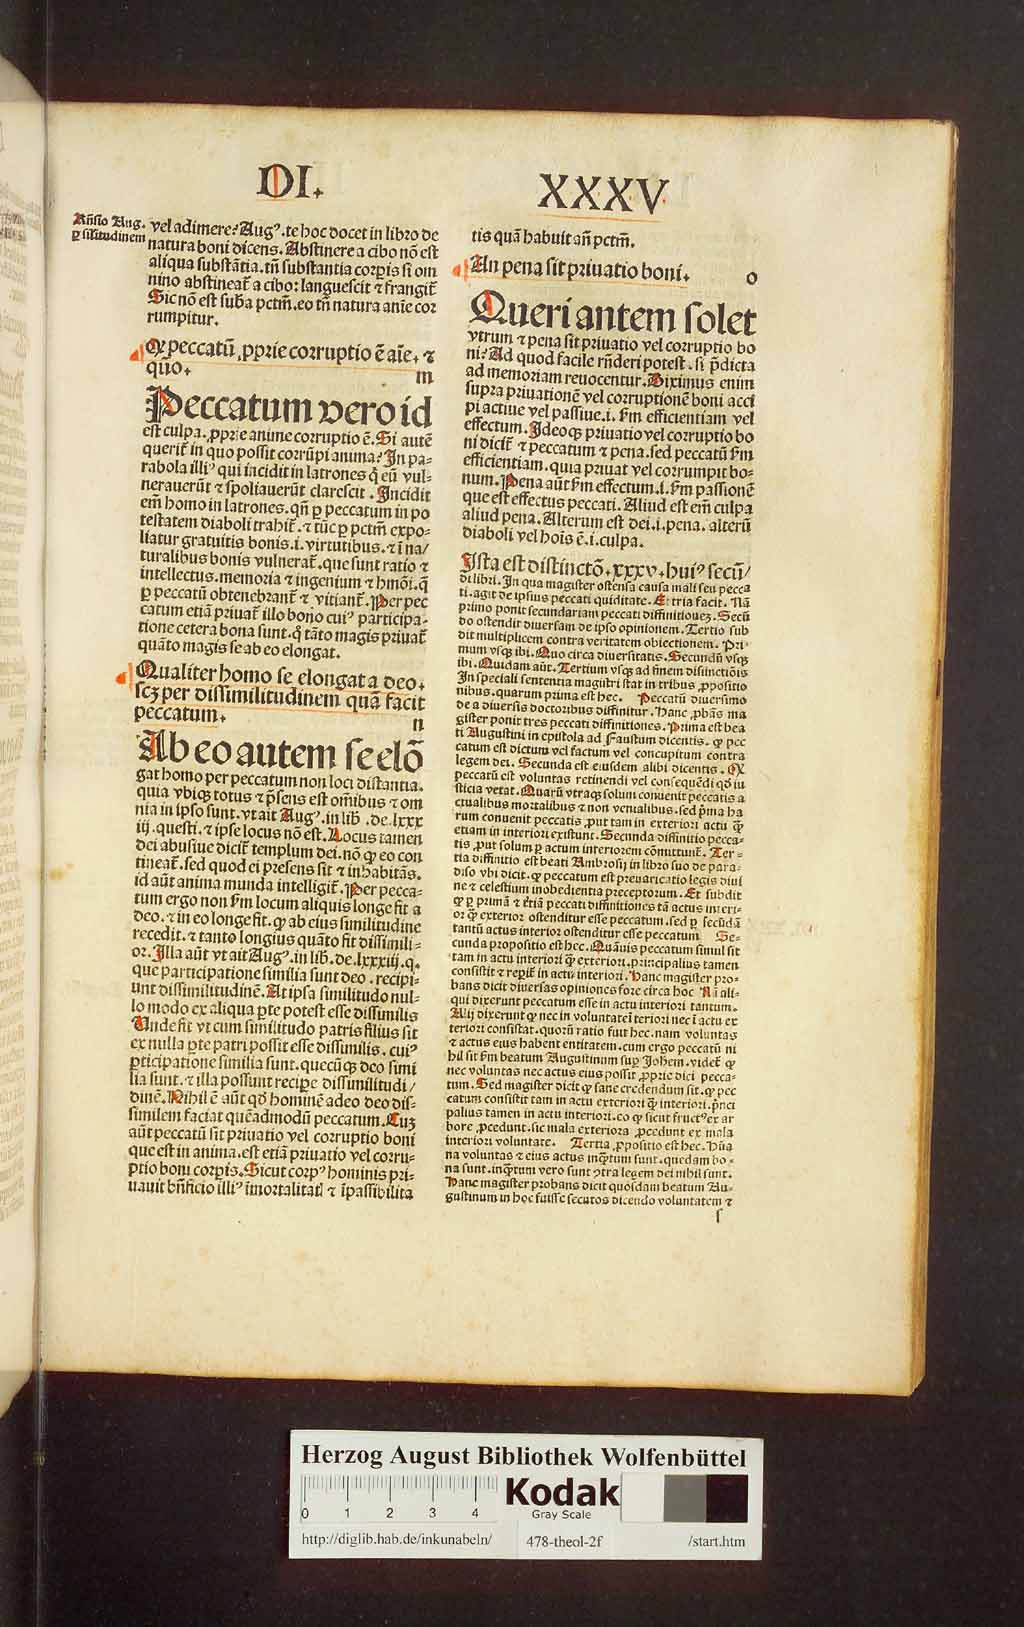 DI.
XXXV
Rñsio Aug.
ꝑ silitudinem
vel adimere? Augꝰ. te hoc docet in libro de
natura boni dicens. Abstinere a cibo nõ est
aliqua substãtia. tñ substantia corpis si om
nino abstineat̃ a cibo: languescit ⁊ frangit̃
Sic nõ est suba pctm̃. eo tñ natura anie cor
rumpitur.
Ꝙ peccatũ ꝓprie corruptio ẽ aĩe. ⁊
quõ. m
Peccatum vero id
est culpa. ꝓprie anime corruptio ẽ. Si autẽ
querit̃ in quo possit corrũpi anima? In pa-
rabola illiꝰ qui incidit in latrones q̃ eũ vul-
nerauerũt ⁊ spoliauerũt clarescit. Incidit
em̃ homo in latrones. qñ ꝑ peccatum in po
testatem diaboli trahit̃. ⁊ tũc ꝑ pctm̃ expo-
liatur gratuitis bonis. i. virtutibus. ⁊ ĩ na/
turalibus bonis vulnerat̃. que sunt ratio ⁊
intellectus. memoria ⁊ ingenium ⁊ hmõi. q̃
ꝑ peccatũ obtenebrant̃ ⁊ vitiant̃. Per pec
catum etiã priuat̃ illo bono cuiꝰ participa-
tione cetera bona sunt. q̃ tãto magis priuat̃
quãto magis se ab eo elongat.
Qualiter homo se elongat a deo.
scꝫ per dissimilitudinem quã facit
peccatum. n
Ab eo autem se elõ
gat homo per peccatum non loci distantia.
quia vbiqꝫ totus ⁊ p̃sens est om̃ibus ⁊ om
nia in ipso sunt. vt ait Augꝰ. in lib̃. de. lxxx
iij. questi. ⁊ ipse locus nõ est. Locus tamen
dei abusiue dicit̃ templum dei. nõ ꝙ eo con
tineat̃. sed quod ei presens sit ⁊ inhabitãs.
id aũt anima munda intelligit̃. Per pecca-
tum ergo non s̃m locum aliquis longe fit a
deo. ⁊ in eo longe fit. ꝙ ab eius similitudine
recedit. ⁊ tanto longius quãto fit dissimili-
or. Illa aũt vt ait Aug̃. in lib̃. de. lxxxiij. q̃.
que participatione similia sunt deo. recipi-
unt dissimilitudinẽ. At ipsa similitudo nul-
lo modo ex aliqua ꝑte potest esse dissimilis
Unde fit vt cum similitudo patris filius sit
ex nulla ꝑte patri possit esse dissimilis. cuiꝰ
ꝑticipatione similia sunt. quecũqꝫ deo simi
lia sunt. ⁊ illa possunt recipe dissimilitudi/
dinẽ. Nihil ẽ aũt qd̃ hominẽ adeo deo dis-
similem faciat quẽadmodũ peccatum. Cuꝫ
aũt peccatũ sit priuatio vel corruptio boni
que est in anima. est etiã priuatio vel corru-
ptio boni corpis. Sicut corpꝰ hominis pri-
uauit bñficio illiꝰ ĩmortalitatꝭ ⁊ ĩpassibilita
tis quã habuit añ pctm̃.
An pena sit priuatio boni. o
Queri antem solet
vtrum ⁊ pena sit priuatio vel corruptio bo
ni? Ad quod facile rñderi potest. si p̃dicta
ad memoriam reuocentur. Diximus enim
supra priuationẽ vel corruptionẽ boni acci
pi actiue vel passiue. i. s̃m efficientiam vel
effectum. Ideoqꝫ priuatio vel corruptio bo
ni dicit̃ ⁊ peccatum ⁊ pena. sed peccatũ s̃m
efficientiam. quia priuat vel corrumpit bo-
num. Pena aũt s̃m effectum. i. s̃m passionẽ
que est effectus peccati. Aliud est em̃ culpa
aliud pena. Alterum est dei. i. pena. alterũ
diaboli vel hoĩs ẽ. i. culpa.
Ista est distinctõ. xxxv. huiꝰ secũ/
di libri. In qua magister ostensa causa mali seu pecca
ti. agit de ipsius peccati quiditate. Et tria facit. Nã
primo ponit secundariam peccati diffinitionez. Secũ
do ostendit diuersam de ipso opinionem. Tertio sub
dit multiplicem contra veritatem obiectionem. Pri-
mum vsqꝫ ibi. Quo circa diuersitatis. Secundũ vsqꝫ
ibi. Quidam aũt. Tertium vsqꝫ ad finem distinctiõis
In speciali sententia magistri stat in tribus ꝓpositio
nibus. quarum prima est hec. Peccatũ diuersimo
de a diuersis doctoribus diffinitur. Hanc ꝓbãs ma
gister ponit tres peccati diffinitiones. Prima est bea
ti Augustini in epistola ad Faustum dicentis. ꝙ pec
catum est dictum vel factum vel concupitum contra
legem dei. Secunda est eiusdem alibi dicentis. Ꝙ
peccatũ est voluntas retinendi vel consequẽdi qd̃ iu
sticia vetat. Quarũ vtraqꝫ solum conuenit peccatis a
ctualibus mortalibus ⁊ non venialibus. sed p̃ma ha
rum conuenit peccatis ꝓut tam in exteriori actu q̃ꝫ
etiam in interiori existunt. Secunda diffinitio pecca-
tis ꝓut solum ꝑ actum interiorem cõmittunt̃. Ter-
tia diffinitio est beati Ambrosij in libro suo de para-
diso vbi dicit. ꝙ peccatum est preuaricatio legis diui
ne ⁊ celestium inobedientia preceptorum. Et subdit
ꝙ ꝑ primã ⁊ t̃tiã peccati diffinitiones tã actus interi-
or q̃ꝫ exterior ostenditur esse peccatum. sed ꝑ secũdã
tantũ actus interior ostenditur esse peccatum Se-
cunda propositio est hec. Quãuis peccatum simul sit
tam in actu interiori q̃ꝫ exteriori. principalius tamen
consistit ⁊ reꝑit̃ in actu interiori. Hanc magister pro-
bans dicit diuersas opiniones fore circa hoc Nã ali-
qui dixerunt peccatum esse in actu interiori tantum.
Alij dixerunt ꝙ nec in voluntate ĩteriori nec ĩ actu ex
teriori consistat. quorũ ratio fuit hec. nam voluntas
⁊ actus eius habent entitatem. cum ergo peccatũ ni
hil sit s̃m beatum Augustinum suꝑ Johem. videt̃ ꝙ
nec voluntas nec actus eius possit ꝓprie dici pecca-
tum. Sed magister dicit ꝙ sane credendum sit. ꝙ pec
catum consistit tam in actu exteriori q̃ꝫ interiori. p̃nci
palius tamen in actu interiori. eo ꝙ sicut fructꝰ ex ar
bore ꝓcedunt. sic mala exteriora ꝓcedunt ex mala
interiori voluntate. Tertia ꝓpositio est hec. Hũa
na voluntas ⁊ eius actus inq̃tum sunt. quedam bo-
na sunt. inq̃tum vero sunt ↄtra legem dei nihil sunt.
Hanc magister probans dicit quosdam beatum Au-
gustinum in hoc fuisse secutos dicendo voluntatem ⁊
s
Herzog August Bibliothek Wolfenbüttel
0 1 2 3 4
Kodak
Gray Scale
http://diglib.hab.de/inkunabeln/ 478-theol-2f /start.htm